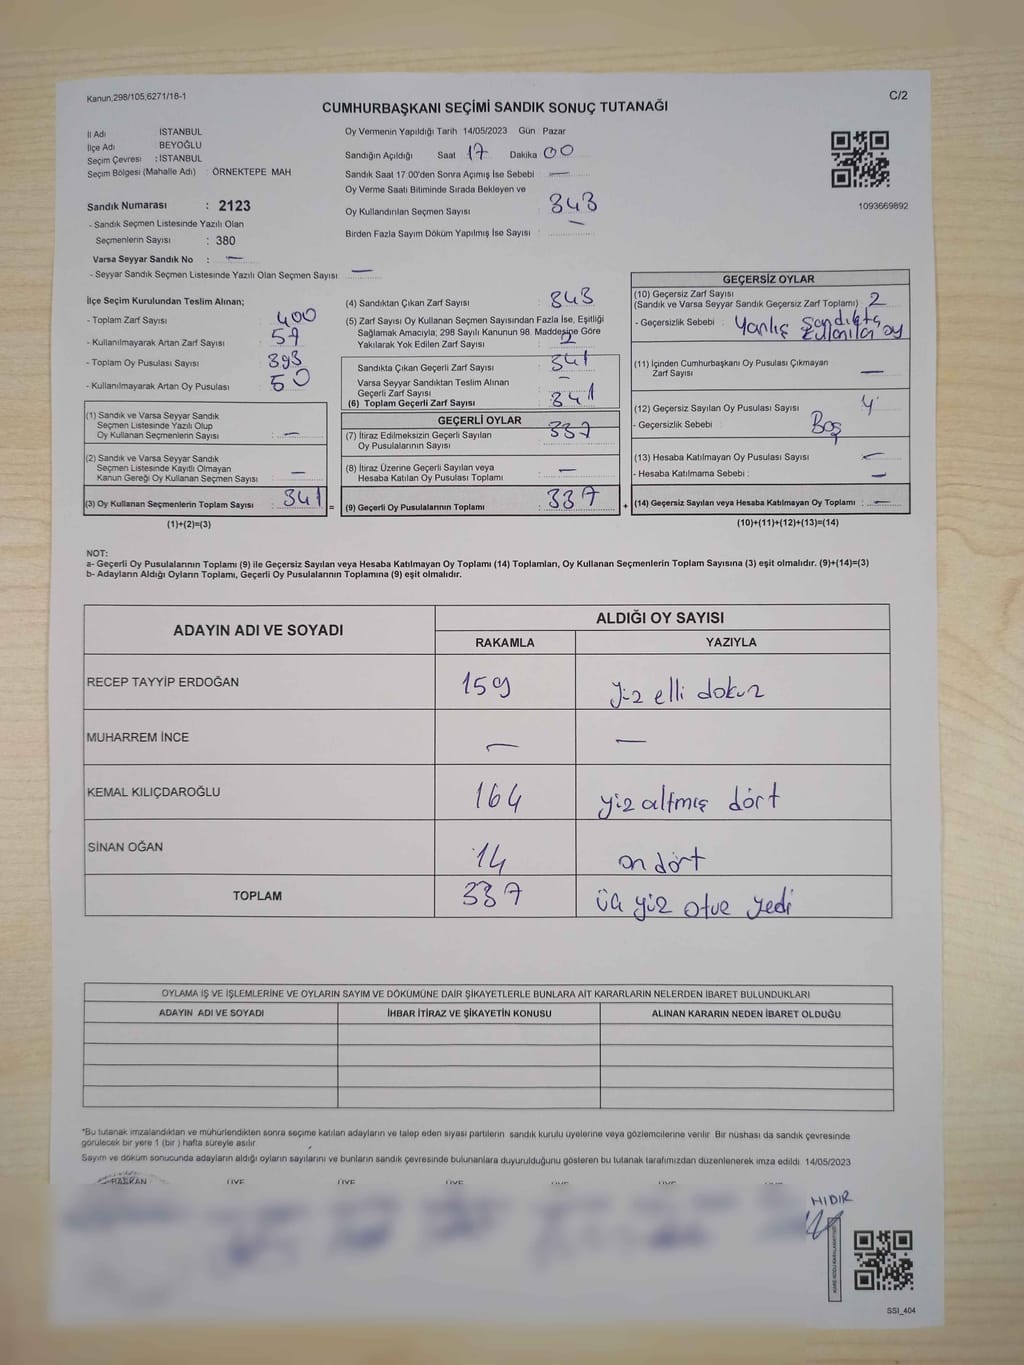 Kanun,298/105,6271/18-1
C/2
CUMHURBAŞKANI SEÇİMİ SANDIK SONUÇ TUTANAĞI
İl Adı İSTANBUL
İlçe Adı : BEYOĞLU
Seçim Çevresi : İSTANBUL
Seçim Bölgesi (Mahalle Adı) : ÖRNEKTEPE MAH
Sandık Numarası : 2123
- Sandık Seçmen Listesinde Yazılı Olan
Seçmenlerin Sayısı : 380
Varsa Seyyar Sandık No : —
- Seyyar Sandık Seçmen Listesinde Yazılı Olan Seçmen Sayısı : —
Oy Vermenin Yapıldığı Tarih 14/05/2023 Gün Pazar
Sandığın Açıldığı Saat 17 Dakika 00
Sandık Saat 17:00'den Sonra Açımış İse Sebebi : —
Oy Verme Saati Bitiminde Sırada Bekleyen ve
Oy Kullandırılan Seçmen Sayısı : 343
Birden Fazla Sayım Döküm Yapılmış İse Sayısı : —
1093669892
İlçe Seçim Kurulundan Teslim Alınan;
- Toplam Zarf Sayısı : 400
- Kullanılmayarak Artan Zarf Sayısı : 57
- Toplam Oy Pusulası Sayısı : 393
- Kullanılmayarak Artan Oy Pusulası : 50
(1) Sandık ve Varsa Seyyar Sandık
Seçmen Listesinde Yazılı Olup
Oy Kullanan Seçmenlerin Sayısı : —
(2) Sandık ve Varsa Seyyar Sandık
Seçmen Listesinde Kayıtlı Olmayan
Kanun Gereği Oy Kullanan Seçmen Sayısı : —
(3) Oy Kullanan Seçmenlerin Toplam Sayısı : 341
(1)+(2)=(3)
(4) Sandıktan Çıkan Zarf Sayısı : 343
(5) Zarf Sayısı Oy Kullanan Seçmen Sayısından Fazla İse, Eşitliği
Sağlamak Amacıyla, 298 Sayılı Kanunun 98. Maddesine Göre
Yakılarak Yok Edilen Zarf Sayısı : 2
Sandıkta Çıkan Geçerli Zarf Sayısı : 341
Varsa Seyyar Sandıktan Teslim Alınan
Geçerli Zarf Sayısı : —
(6) Toplam Geçerli Zarf Sayısı : 341
GEÇERLİ OYLAR
(7) İtiraz Edilmeksizin Geçerli Sayılan
Oy Pusulalarının Sayısı : 337
(8) İtiraz Üzerine Geçerli Sayılan veya
Hesaba Katılan Oy Pusulası Toplamı : —
= (9) Geçerli Oy Pusulalarının Toplamı : 337 +
GEÇERSİZ OYLAR
(10) Geçersiz Zarf Sayısı
(Sandık ve Varsa Seyyar Sandık Geçersiz Zarf Toplamı) : 2
- Geçersizlik Sebebi : Yanlış Sandıkta
oy
(11) İçinden Cumhurbaşkanı Oy Pusulası Çıkmayan
Zarf Sayısı : —
(12) Geçersiz Sayılan Oy Pusulası Sayısı : 4
- Geçersizlik Sebebi : Boş
(13) Hesaba Katılmayan Oy Pusulası Sayısı : —
- Hesaba Katılmama Sebebi : —
(14) Geçersiz Sayılan veya Hesaba Katılmayan Oy Toplamı : —
(10)+(11)+(12)+(13)=(14)
NOT:
a- Geçerli Oy Pusulalarının Toplamı (9) ile Geçersiz Sayılan veya Hesaba Katılmayan Oy Toplamı (14) Toplamları, Oy Kullanan Seçmenlerin Toplam Sayısına (3) eşit olmalıdır. (9)+(14)=(3)
b- Adayların Aldığı Oyların Toplamı, Geçerli Oy Pusulalarının Toplamına (9) eşit olmalıdır.
ADAYIN ADI VE SOYADI ALDIĞI OY SAYISI
RAKAMLA YAZIYLA
RECEP TAYYİP ERDOĞAN 159 yüz elli dokuz
MUHARREM İNCE — —
KEMAL KILIÇDAROĞLU 164 yüz altmış dört
SİNAN OĞAN 14 on dört
TOPLAM 337 üç yüz otuz yedi
OYLAMA İŞ VE İŞLEMLERİNE VE OYLARIN SAYIM VE DÖKÜMÜNE DAİR ŞİKAYETLERLE BUNLARA AİT KARARLARIN NELERDEN İBARET BULUNDUKLARI
ADAYIN ADI VE SOYADI İHBAR İTİRAZ VE ŞİKAYETİN KONUSU ALINAN KARARIN NEDEN İBARET OLDUĞU
*Bu tutanak imzalandıktan ve mühürlendikten sonra seçime katılan adayların ve talep eden siyasi partilerin sandık kurulu üyelerine veya gözlemcilerine verilir. Bir nüshası da sandık çevresinde
görülecek bir yere 1 (bir ) hafta süreyle asılır.
Sayım ve döküm sonucunda adayların aldığı oyların sayılarını ve bunların sandık çevresinde bulunanlara duyurulduğunu gösteren bu tutanak tarafımızdan düzenlenerek imza edildi. 14/05/2023
BAŞKAN ÜYE ÜYE ÜYE ÜYE ÜYE ÜYE
HIDIR
SSI_404